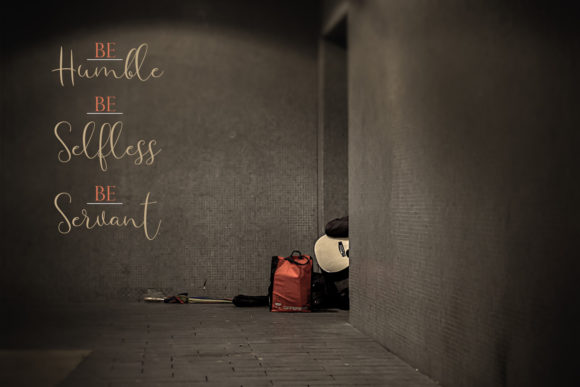 BE
Humble
BE
Selfless
BE
Servant